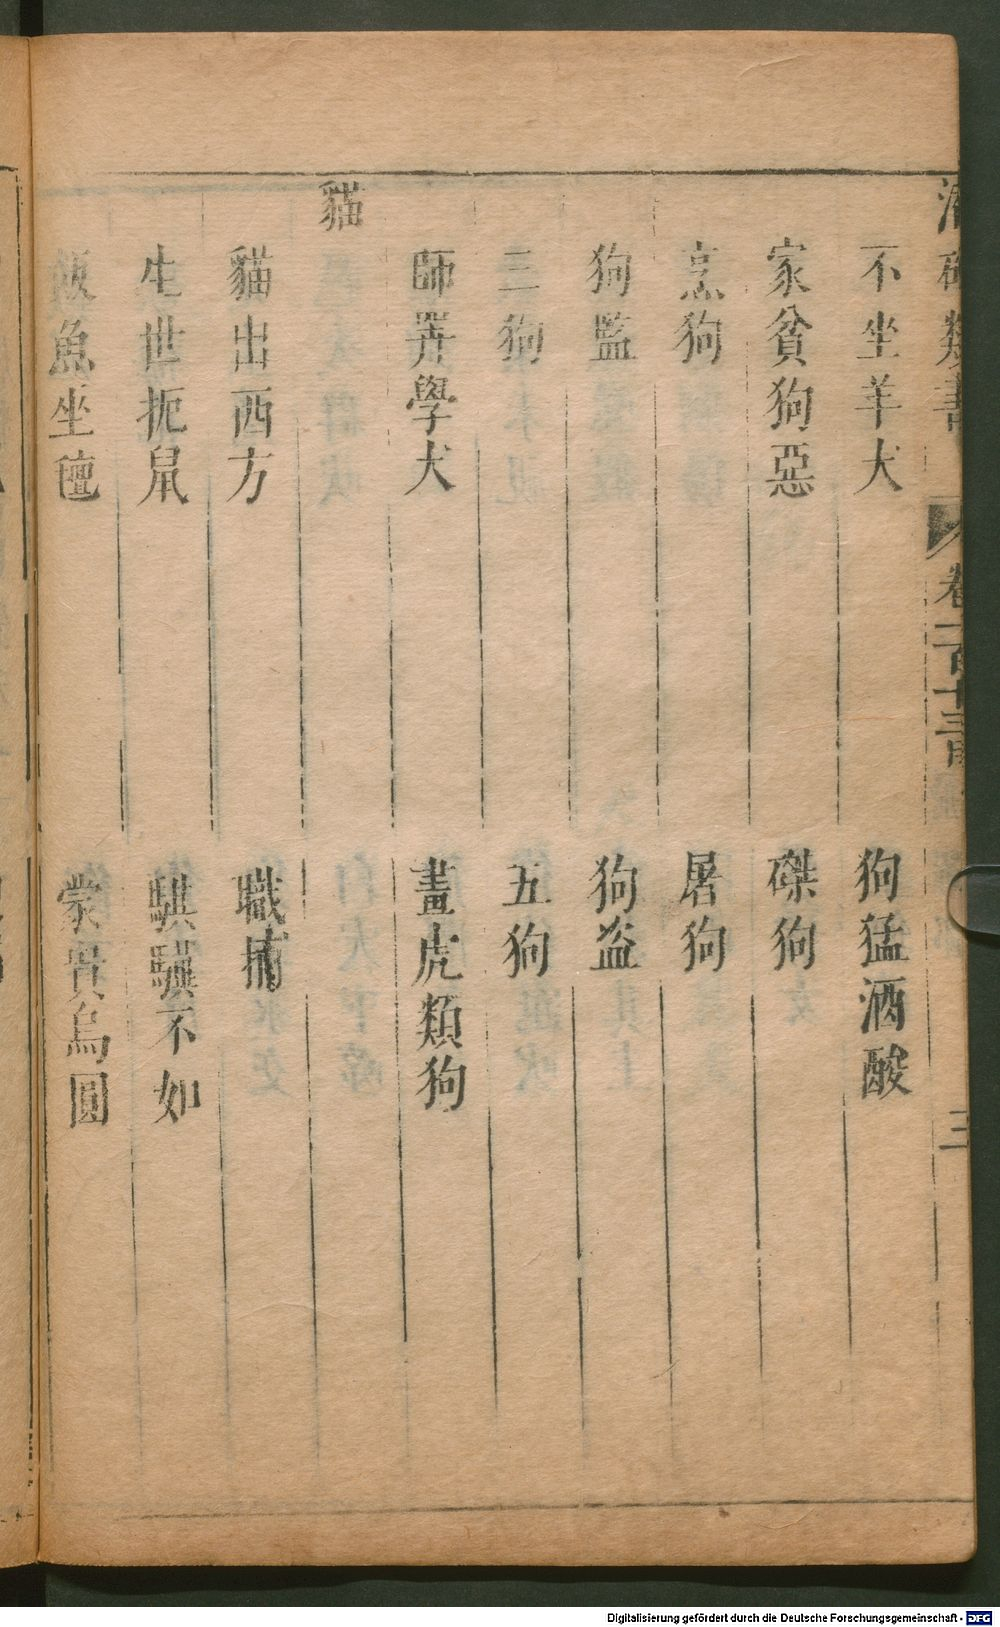 不坐羊犬　狗猛酒酸
家貧狗惡　磔狗
烹狗　屠狗
狗監　狗盜
三狗　五狗
師睪學犬　畫虎類狗
貓
貓出西方　職捕
生世扼鼠　騏驥不如
飯魚坐氊　蒙貴烏圓
類書　卷一百十三目
三
Digitalisierung gefördert durch die Deutsche Forschungsgemeinschaft - DFG